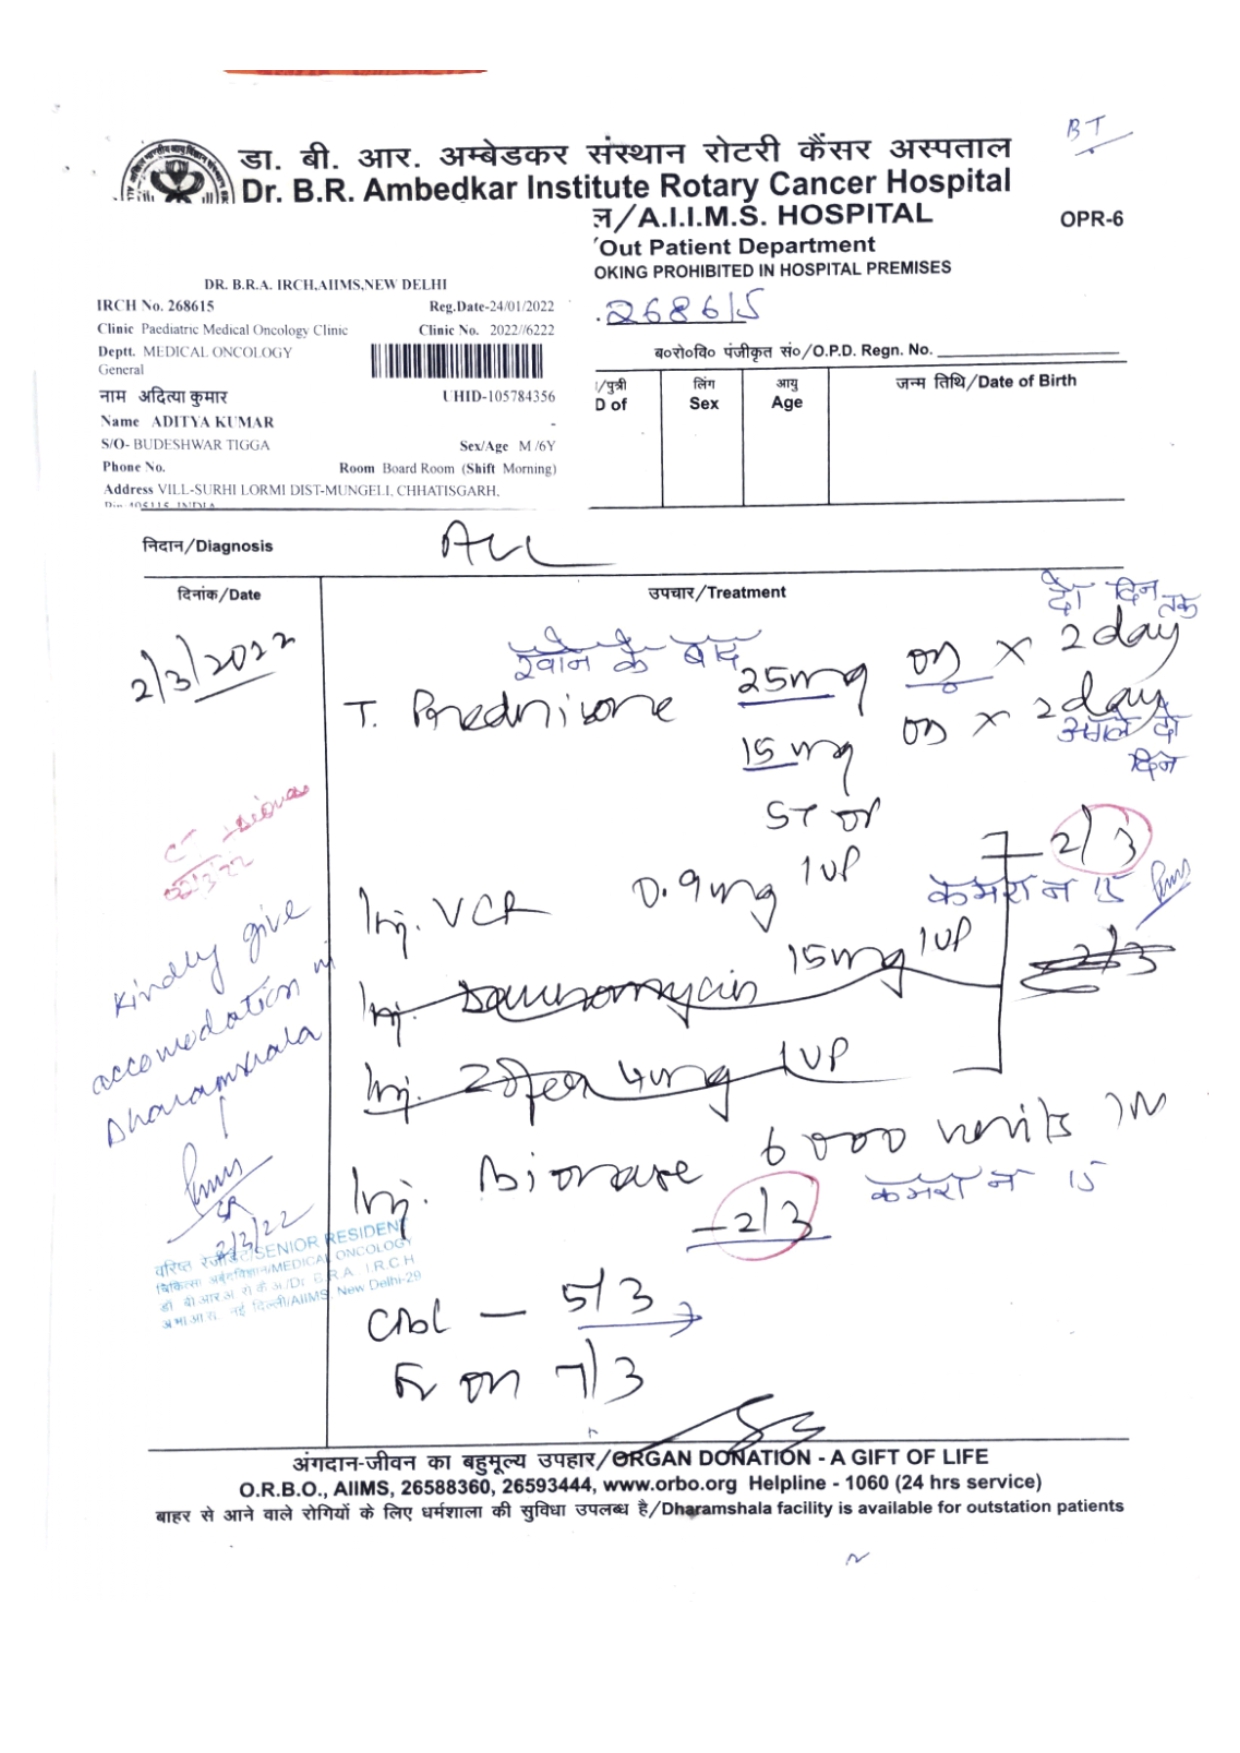 BT
डा. बी. आर. अम्बेडकर संस्थान रोटरी कैंसर अस्पताल
Dr. B.R. Ambedkar Institute Rotary Cancer Hospital
ल/A.I.I.M.S. HOSPITAL
OPR-6
Out Patient Department
OKING PROHIBITED IN HOSPITAL PREMISES
DR. B.R.A. IRCH,AIIMS,NEW DELHI
IRCH No. 268615 Reg.Date-24/01/2022
Clinic Paediatric Medical Oncology Clinic Clinic No. 2022//6222
Deptt. MEDICAL ONCOLOGY
General
नाम अदित्या कुमार UHID-105784356
Name ADITYA KUMAR -
S/O- BUDESHWAR TIGGA Sex/Age M /6Y
Phone No. Room Board Room (Shift Morning)
Address VILL-SURHI LORMI DIST-MUNGELI, CHHATISGARH,
268615
ब०रो०वि० पंजीकृत सं०/O.P.D. Regn. No.
/पुत्री लिंग आयु जन्म तिथि/Date of Birth
D of Sex Age
निदान/Diagnosis ALL
दिनांक/Date उपचार/Treatment
दो दिन तक
2/3/2022
खाने के बाद
T. Prednisone 25mg OD x 2 day
15 mg OD x 2 day
अगले दो दिन
ST or
Inj. VCR 0.9mg IVP 2/3
कमरा न 15
Inj. Daunomycin 15mg IVP 2/3
Inj. Zofer 4mg IVP
Inj. Bionase 6000 units IM
कमरा न 15
– 2/3
CBC – 5/3
Fv on 7/3
22/3/22
Kindly give
accomodation in
Dharamshala
SR
2/3/22
वरिष्ठ रेजीडेंट/SENIOR RESIDENT
चिकित्सा अर्बुदविज्ञान/MEDICAL ONCOLOGY
डॉ बी.आर.अ. रो.कै.अ./Dr. B.R.A. I.R.C.H
अ.भा.आ.सं. नई दिल्ली/AIIMS, New Delhi-29
अंगदान-जीवन का बहुमूल्य उपहार/ORGAN DONATION - A GIFT OF LIFE
O.R.B.O., AIIMS, 26588360, 26593444, www.orbo.org Helpline - 1060 (24 hrs service)
बाहर से आने वाले रोगियों के लिए धर्मशाला की सुविधा उपलब्ध है/Dharamshala facility is available for outstation patients